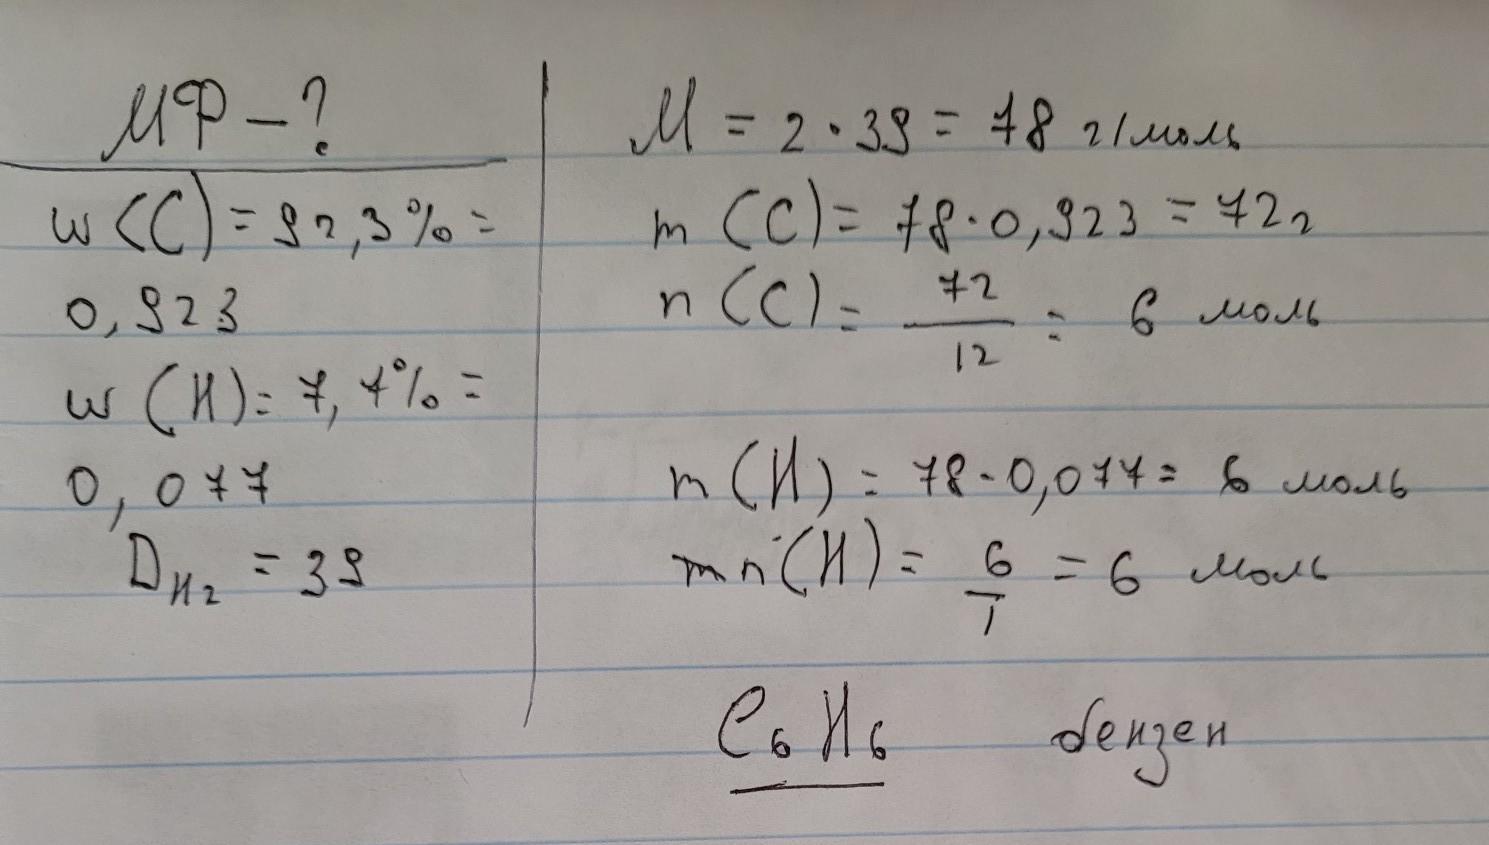 МФ – ?
w (C) = 92,3% =
0,923
w (H) = 7,7% =
0,077
D H2 = 39
M = 2 · 39 = 78 г/моль
m (C) = 78 · 0,923 = 72 г
n (C) = 72/12 = 6 моль
m (H) = 78 · 0,077 = 6 моль
n (H) = 6/1 = 6 моль
C6H6 бензен